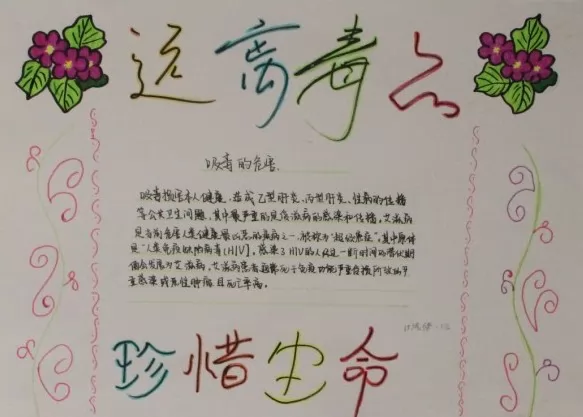 远离毒品
吸毒的危害
吸毒损害本人健康,造成乙型肝炎、丙型肝炎、性病的传播
等公共卫生问题,其中最严重的是艾滋病的感染和传播。艾滋病
是当前危害人类健康最凶恶的疾病之一,被称为“超级癌症”,其中原体
是“人类免疫缺陷病毒(HIV)。感染了HIV的人在一断时间的替伏期
便会发展为艾滋病,艾滋病患者最终死于免疫功能严重缺损所致的严
重感染或恶性肿瘤且死亡率高。
珍惜生命